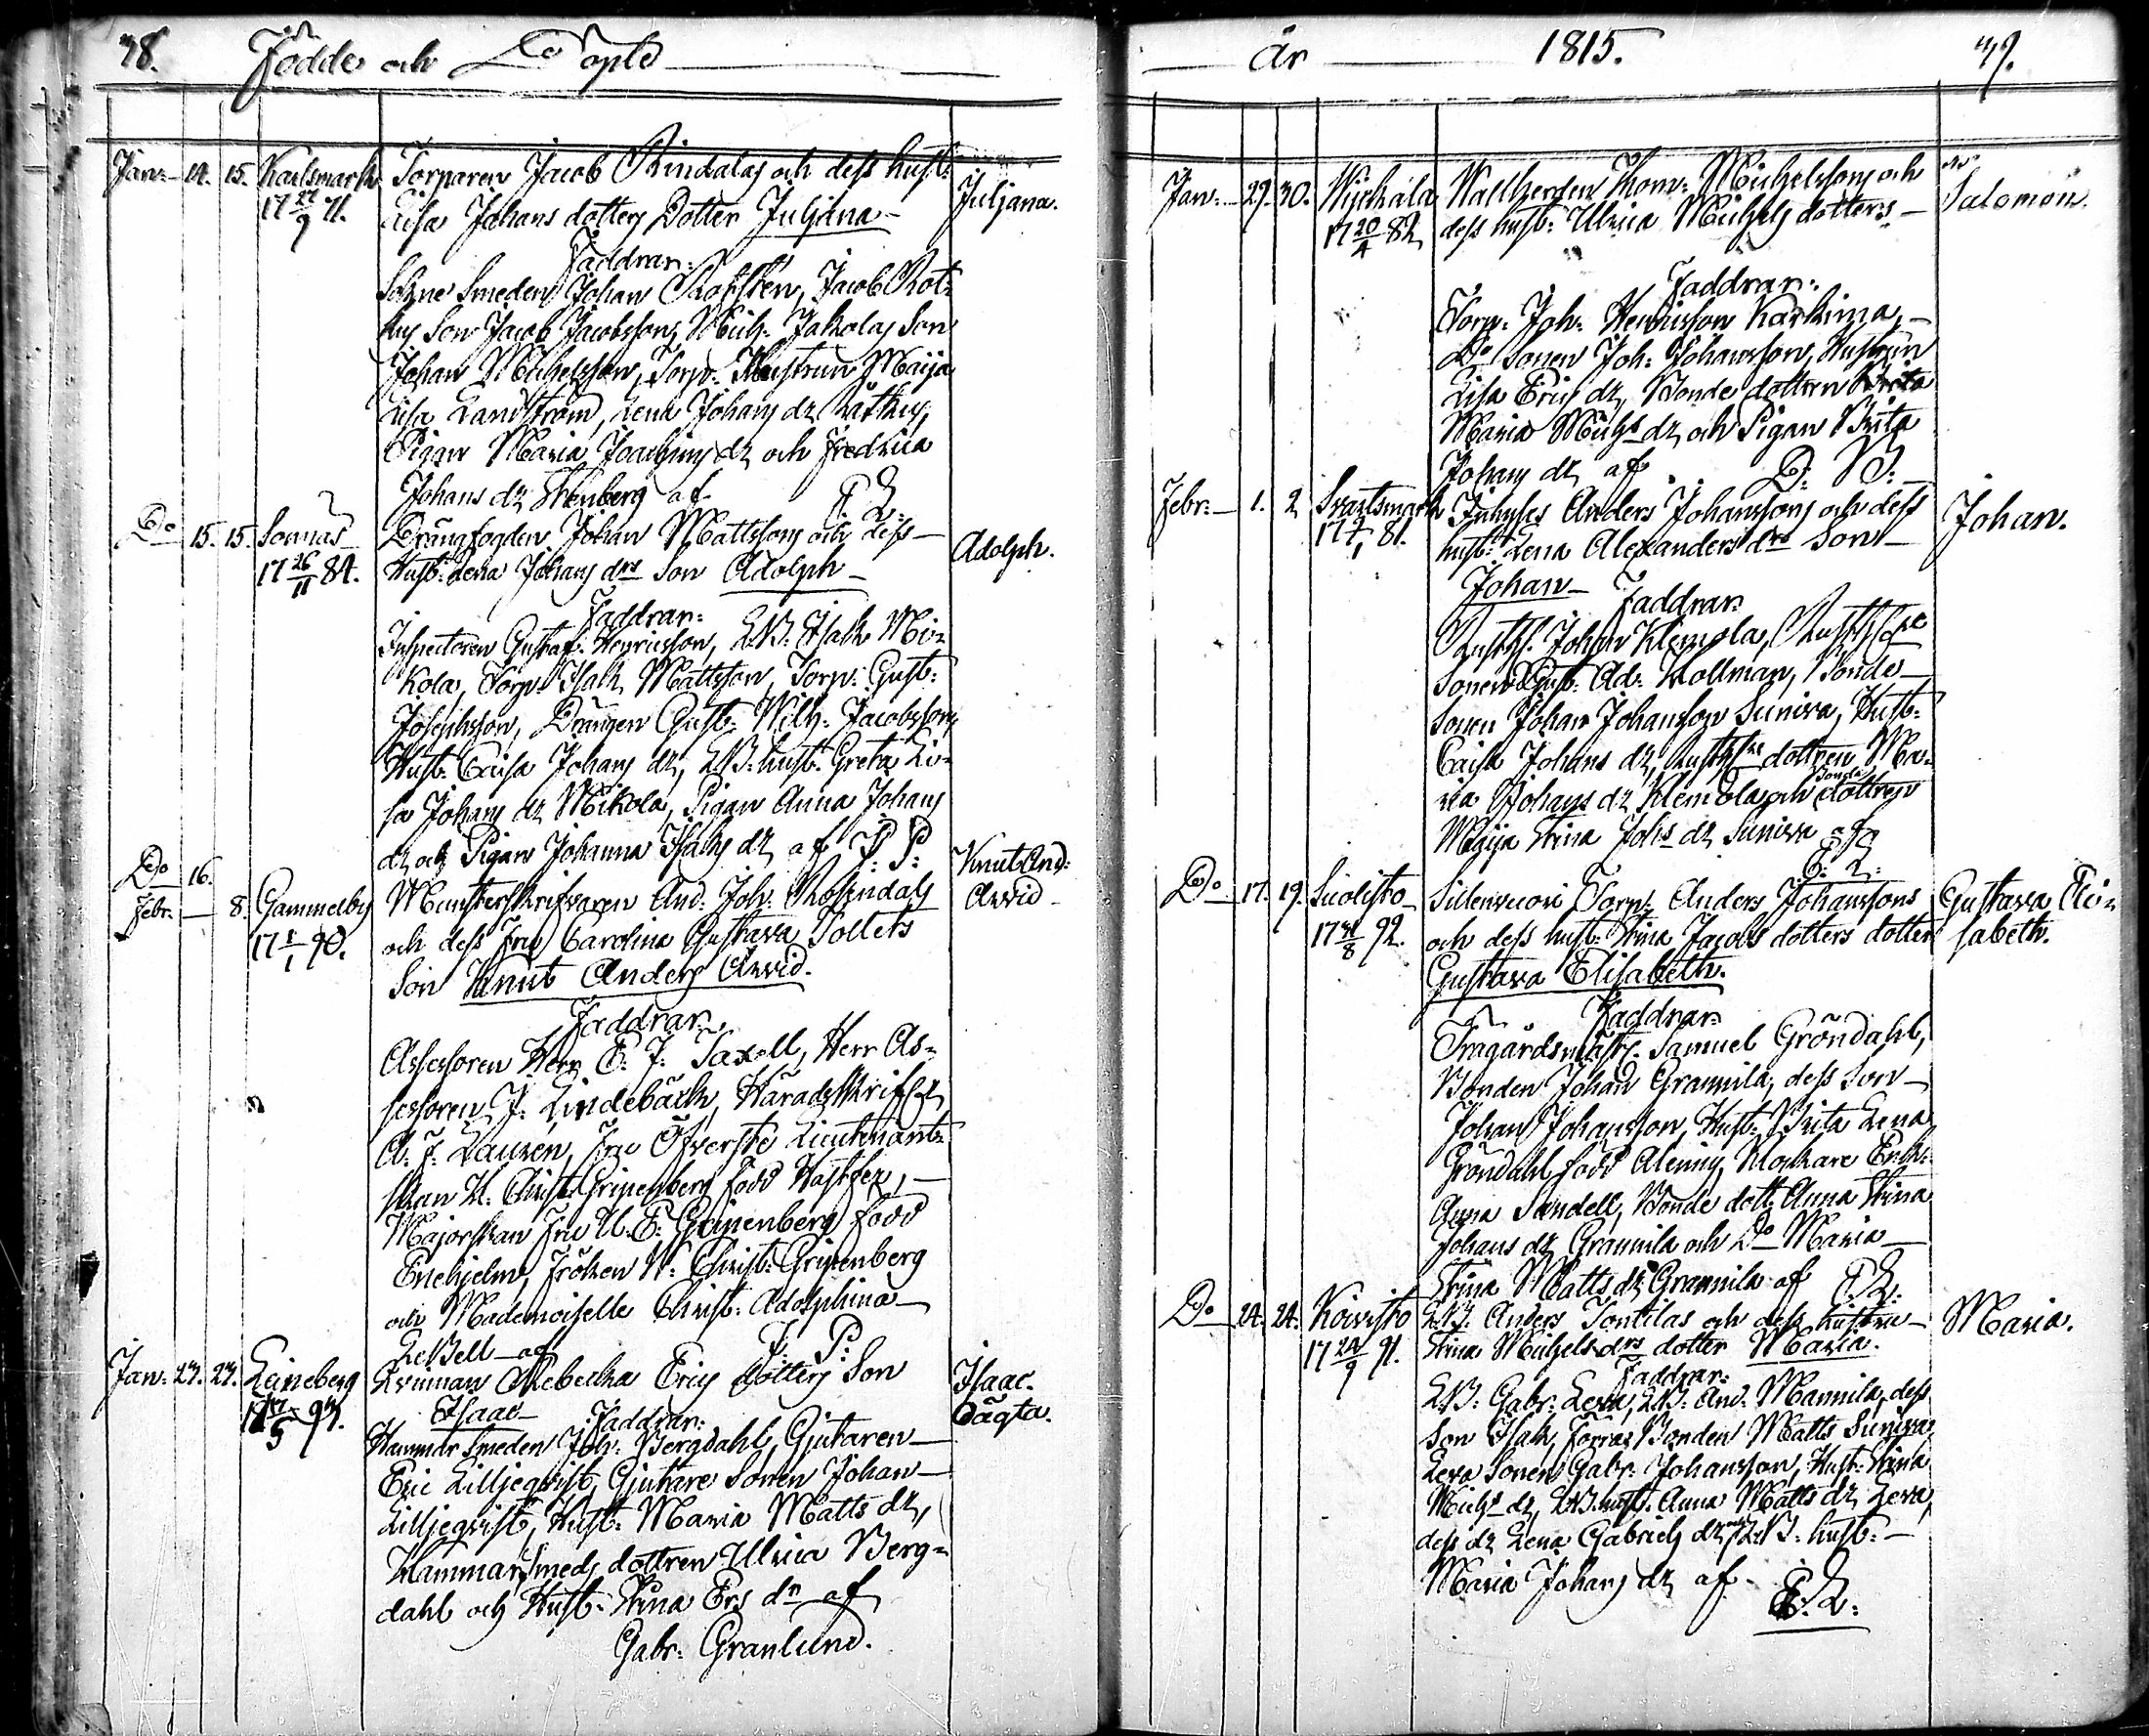 38. Födde och Döpte
Jan: 14. 15. Karlsmark Torparen Jacob Rindalas och dess hust: Juljana.
17 22/9 71. Caisa Johans dotters Dotter Juljana
Faddrar:
Sokne Smeden Johan Rothstén, Jacob Rot-
kus Son Jacob Jacobsson, Mich: Jakolas Son
Johan Michelsson, Torp: Hustrun Maija
Lisa Landström, Lena Johans dr Rätkus,
Pigan Maria Joachims dr och Fredrica
Johans dr Stenberg af E. L:
Do 15. 15. Sonnäs Drängfogden Johan Mattssons och dess Adolph.
17 26/11 84. Hust: Lena Johans drs Son Adolph
Faddrar:
Inspectoren Gustaf Henricsson, LB: Isak Mi-
kola, Torp: Isak Mattsson, Torp: Gust:
Josephsson, Drängen Gust: Wilh: Jacobsson,
Hust: Caisa Johans dr, LB: hust: Greta Li-
sa Johans dr Mikola, Pigan Anna Johans
dr och Pigan Johanna Isaks dr af J: P:
Do 16.
Febr: 8. Gammelby Munsterskrifvaren And: Joh: Rosendals Knut And: Arvid
17 1/1 90. och dess Fru Carolina Gustava Tollets
Son Knut Anders Arvid.
Faddrar:
Assessoren Herr E. J: Taxell, Herr As-
sessoren J: Lindebäck, Häradsskrifv:
A. F. Lauren, Fru Öfverste Lieutenant-
skan H. Christ: Gripenberg född Hastfer,
Majorskan Fru U. E: Gripenberg född
Enehjelm, Fröken W: Christ: Gripenberg
och Mademoiselle Christ: Adolphina
LeBell af J: P:
Jan: 23. 23. Leineberg Qvinnan Rebecka Erics dotters Son Isaac.
Isaac Faddrar: oägta.
Hammar Smeden Joh: Bergdahl, Gjutaren
Eric Lilljeqvist, Gjutare Sonen Johan
Lilljeqvist, Hust: Maria Matts dr,
Hammarsmeds dottren Ulrica Berg-
dahl och Hust: Stina Ers dr af
Gabr: Granlund.
År 1815. 39.
Jan: 29. 30. Wijckala Wallherden Thom: Michelssons och Salomon.
17 20/4 82 dess hust: Ulrica Michels dotters
Faddrar:
Torp: Joh: Henricsson Karkima,
Do Sonen Joh: Johansson, Hustrun
Lisa Erics dr, Bonde dottren
Maria Michs dr, och Pigan Brita
Johans dr af D: B:
Febr: 1. 2 Svartsmark Inhyses Anders Johanssons och dess Johan.
hust: Lena Alexanders drs Son
Johan Faddrar:
Rusth: Johan Klemola,
Sonen Gust: Ad: Kollman, Bonde
Sonen Johan Johansson Sunisa, Hust:
Caisa Johans dr, dottren Ma-
ria Johans dr Klemola och Bonde dottren
Maija Stina Johs dr Sunisa af
E. L:
Do 17. 19. Suolisto Torp: Anders Johanssons Gustava Eli-
17 31/8 92. och dess hust: Stina Jacobs dotters dotter sabeth.
Gustava Elisabeth.
Faddrar:
Trägårdsmäst: Samuel Gröndahl,
Bonden Johan Grannila, dess Son
Johan Johansson, Hust: Brita Lena
Gröndahl född Alenius, Klockare Enk:
Anna Sandell, Bonde dott: Anna Stina
Johans dr Grannila och Do Maria
Stina Matts dr Grannila af E. L:
Do 24. 24. Koivisto LB: Anders Tontilas och dess hustru Maria.
17 24/9 91. Stina Michels drs dotter Maria.
Faddrar:
LB: Gabr: Leva, LB: And: Mannila, dess
Son Isak, Förra Bonden Matts Sunisa,
Leva Sonen Gabr: Johansson, Hust: Stina
Michs dr, LB: hust: Anna Matts dr Leva,
dess dr Lena Gabriels dr, och LB: hust:
Maria Johans dr af E. L: